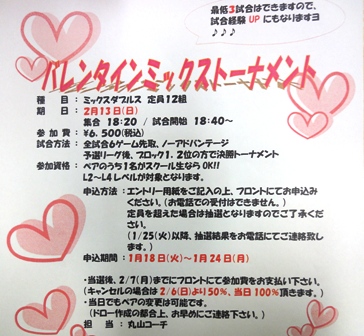 最低3試合はできますので、
試合経験 UP にもなりますヨ
♪♪♪
バレンタインミックストーナメント
種　目　：ミックスダブルス 定員12組
期　日　：2月13日(日)
集合 18:20 / 試合開始 18:40～
参加費：¥6,500(税込)
試合方法：全試合6ゲーム先取、ノーアドバンテージ
予選リーグ後、ブロック1、2位の方で決勝トーナメント
参加資格：ペアのうち1名がスクール生ならOK!!
L2～L4レベルが対象となります。
申込方法：エントリー用紙をご記入の上、フロントにてお申込み
ください。(お電話での受付はできません。)
定員を超えた場合は抽選となりますのでご了承くだ
さい。
(1/25(火)以降、抽選結果をお電話にてご連絡致しま
す。)
申込期間：1月18日(火)～1月24日(月)
・当選後、2/7(月)までにフロントにて参加費をお支払い下さい。
(キャンセルの場合は2/6(日)より50%、当日100%頂きます。)
・当日でもペアの変更は可能です。
(ドロー作成の都合上、お早めにご連絡下さい。)
担　当　：丸山コーチ